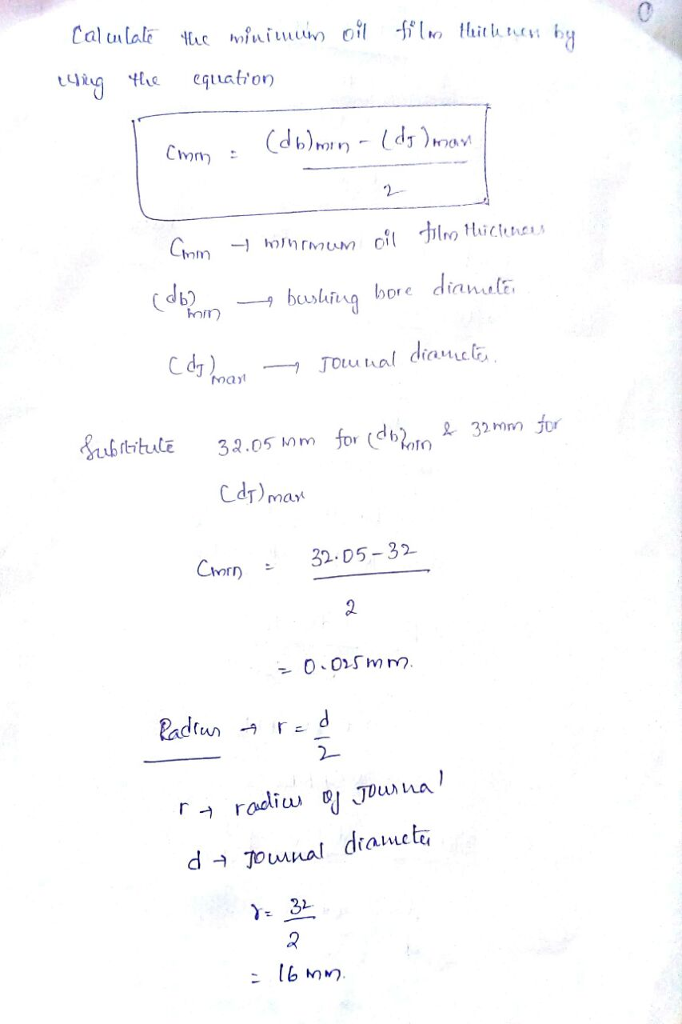 Calculate the minimum oil film thickness by
using the equation
Cmin = (db)min - (dJ)max
2
Cmin → minimum oil film thickness
(db)min → bushing bore diameter
(dJ)max → Journal diameter.
Substitute 32.05 mm for (db)min & 32mm for
(dJ)max
Cmin = 32.05-32
2
= 0.025mm.
Radius → r = d
2
r → radius of Journal
d → Journal diameter
r = 32
2
= 16 mm.